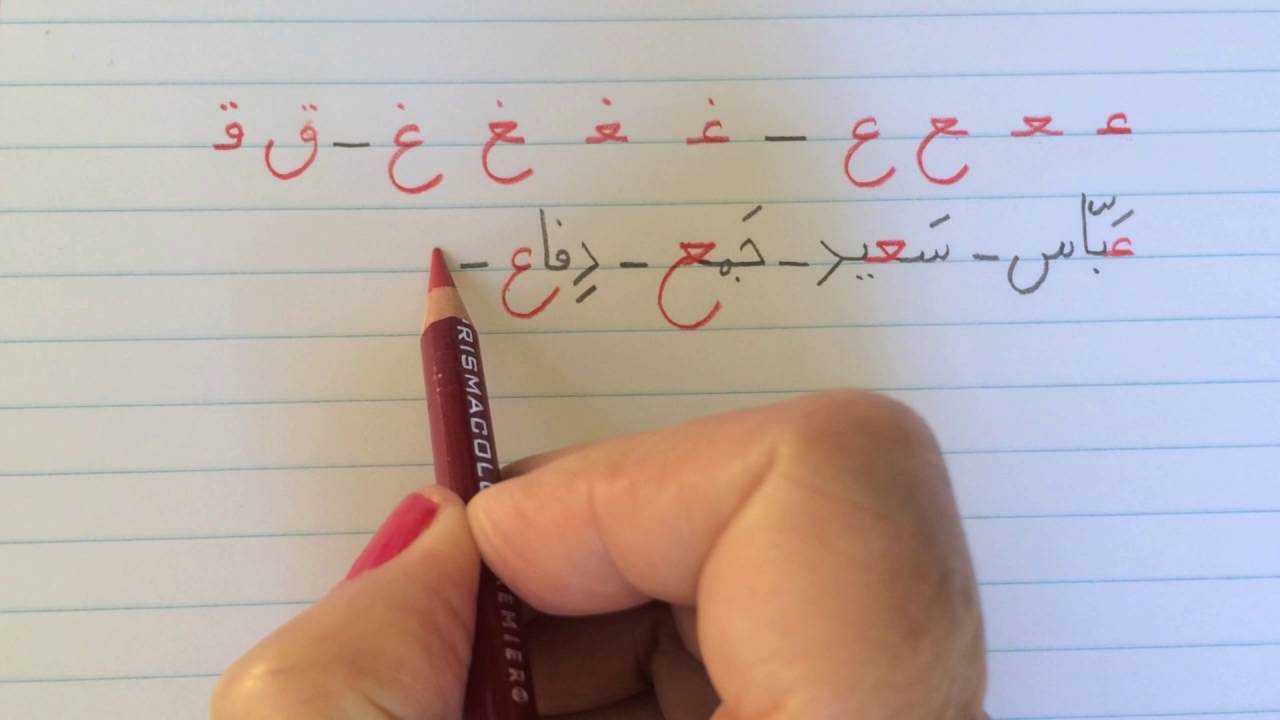 عـ ـعـ ـع ع – غـ ـغـ ـغ غ – ق قـ
عَبّاس – سَعید – جَمع – دِفاع –
RISMACOL
EMIER